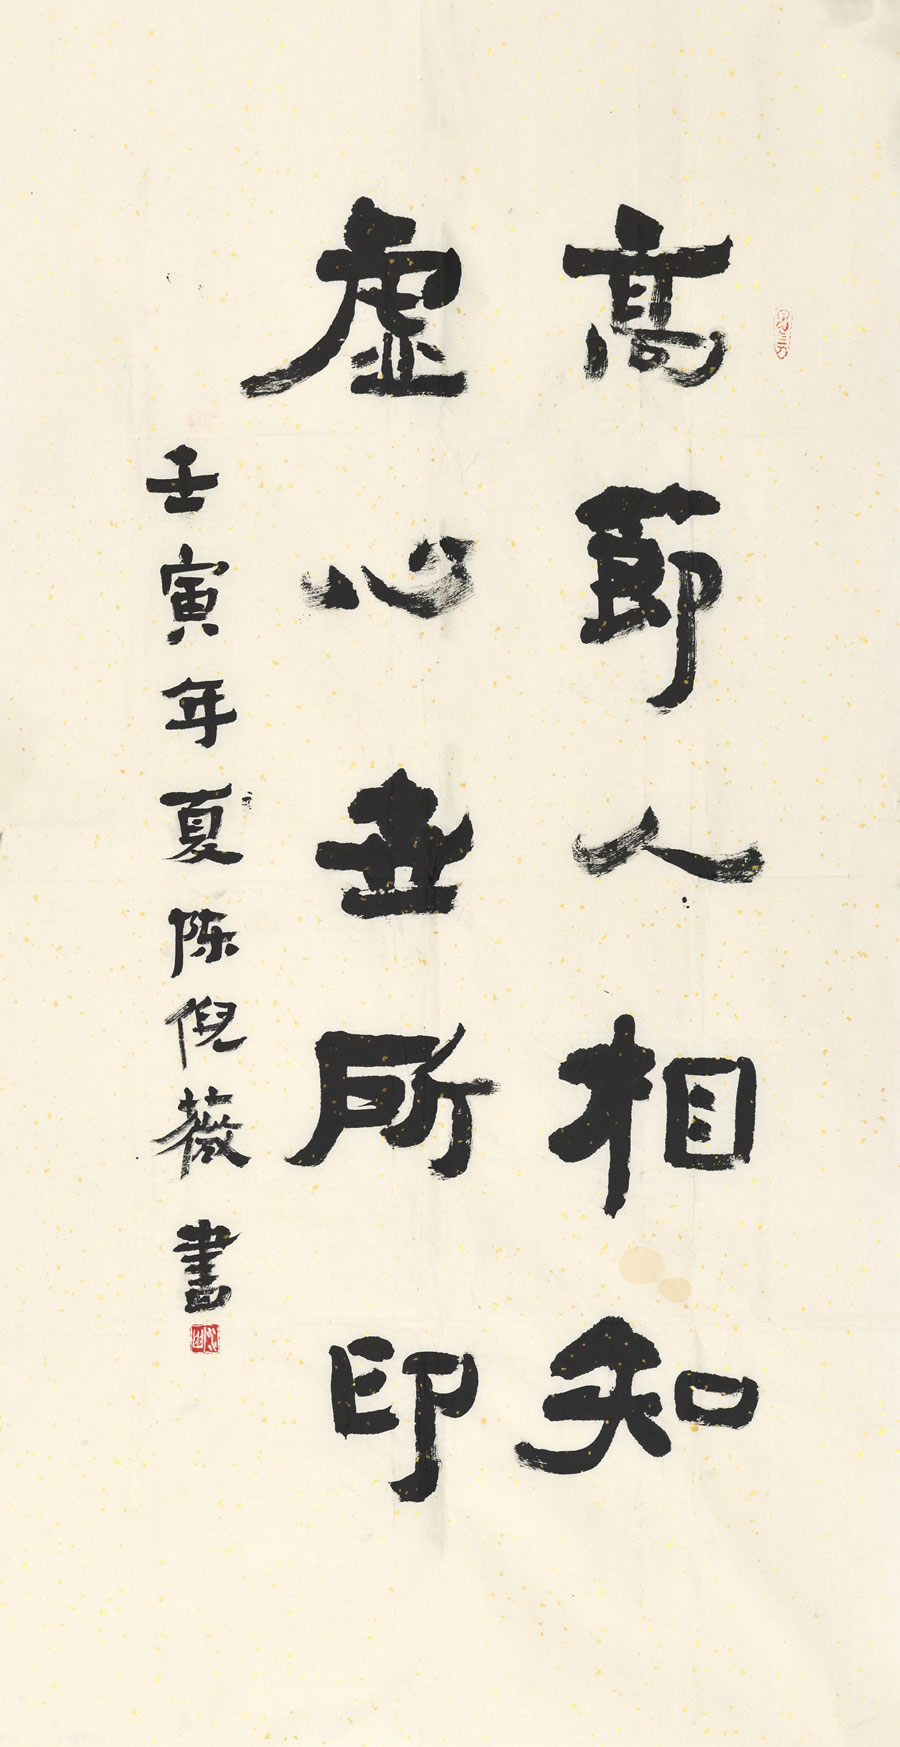 高節人相知
虚心世所印
壬寅年夏陈倪薇書